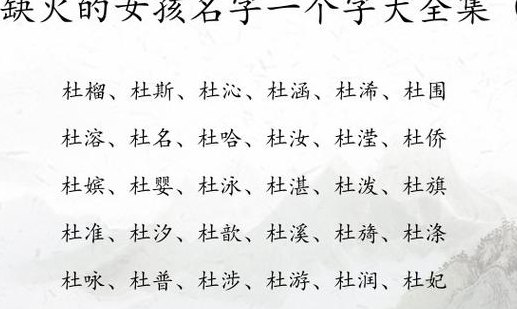 缺火的女孩名字一个字大全集（
杜榴、杜斯、杜沁、杜涵、杜浠、杜围
杜溶、杜名、杜哈、杜汝、杜滢、杜侨
杜嫔、杜婴、杜泳、杜湛、杜泼、杜旗
杜准、杜汐、杜歆、杜溪、杜旖、杜涤
杜咏、杜普、杜涉、杜游、杜润、杜妃